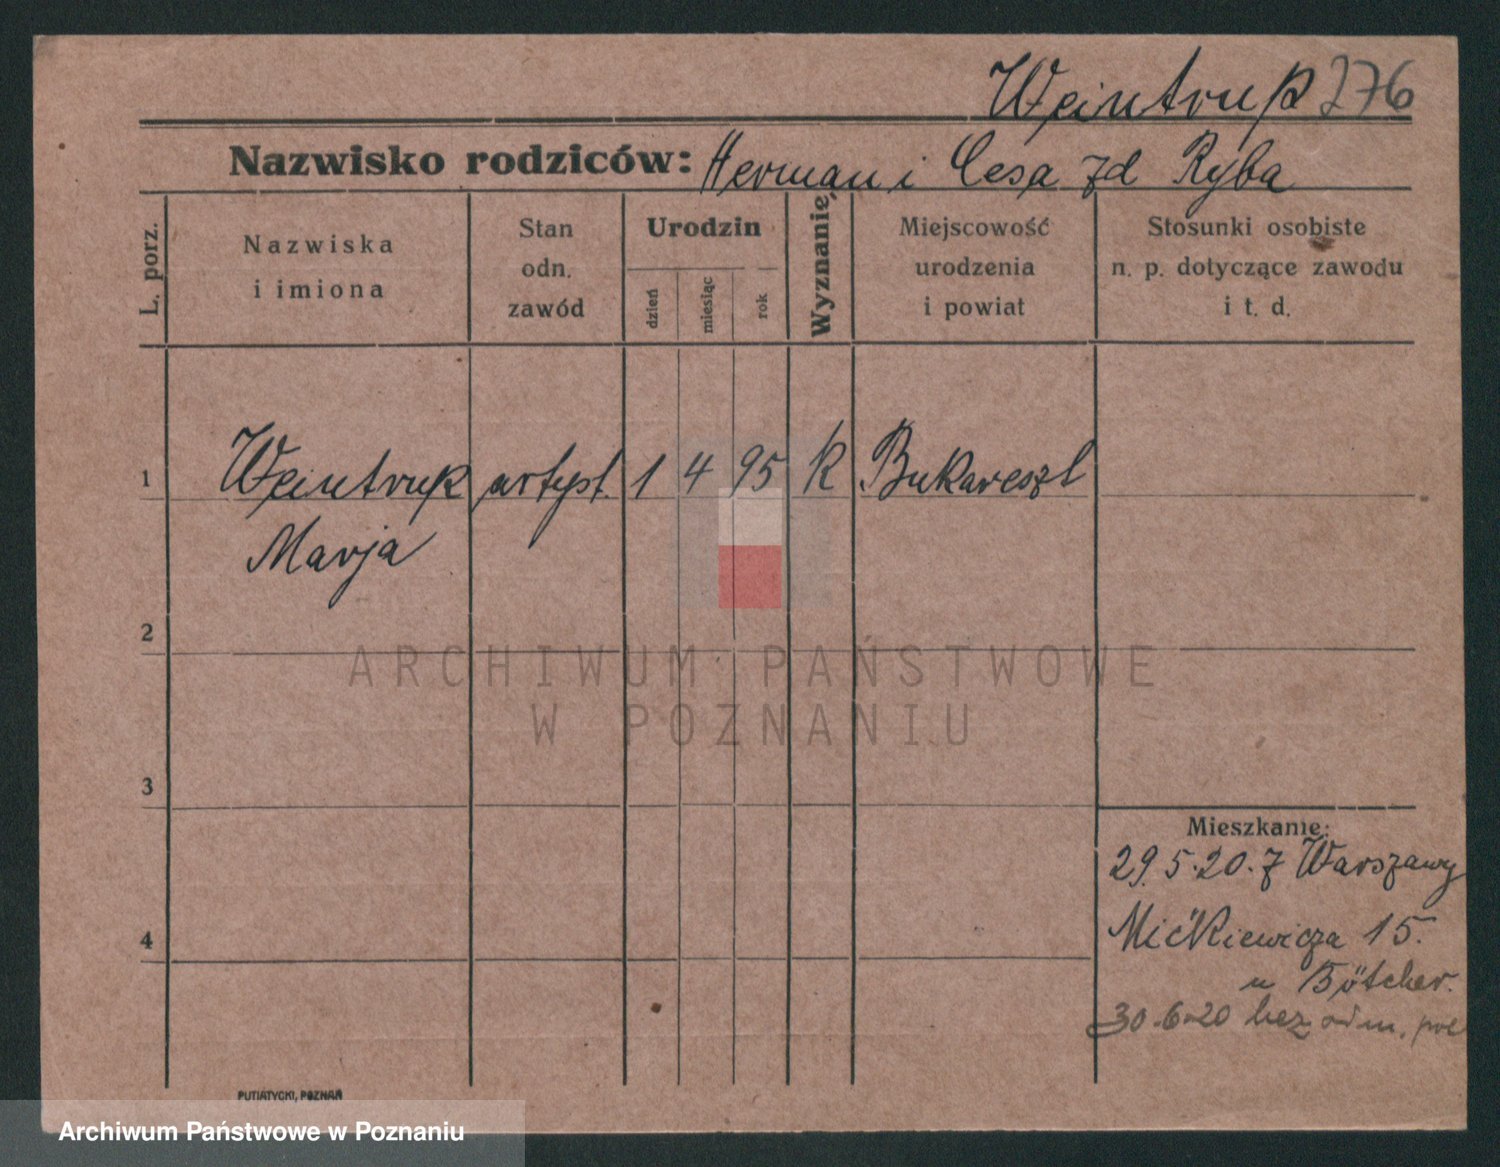 Weintrup 276
Nazwisko rodziców: Herman i Cesa zd Ryba
L. porz.
Nazwiska
i imiona
Stan
odn.
zawód
Urodzin
dzień
miesiąc
rok
Wyznanie
Miejscowość
urodzenia
i powiat
Stosunki osobiste
n. p. dotyczące zawodu
i t. d.
1 Weintrup artyst. 1 4 95 k Bukareszt
Marja
2
3
4
Mieszkanie:
29.5.20. z Warszawy
Mickiewicza 15.
u Bötcher.
30.6.20 bez odm. pol
PUTIATYCKI, POZNAŃ
ARCHIWUM PAŃSTWOWE
W POZNANIU
Archiwum Państwowe w Poznaniu